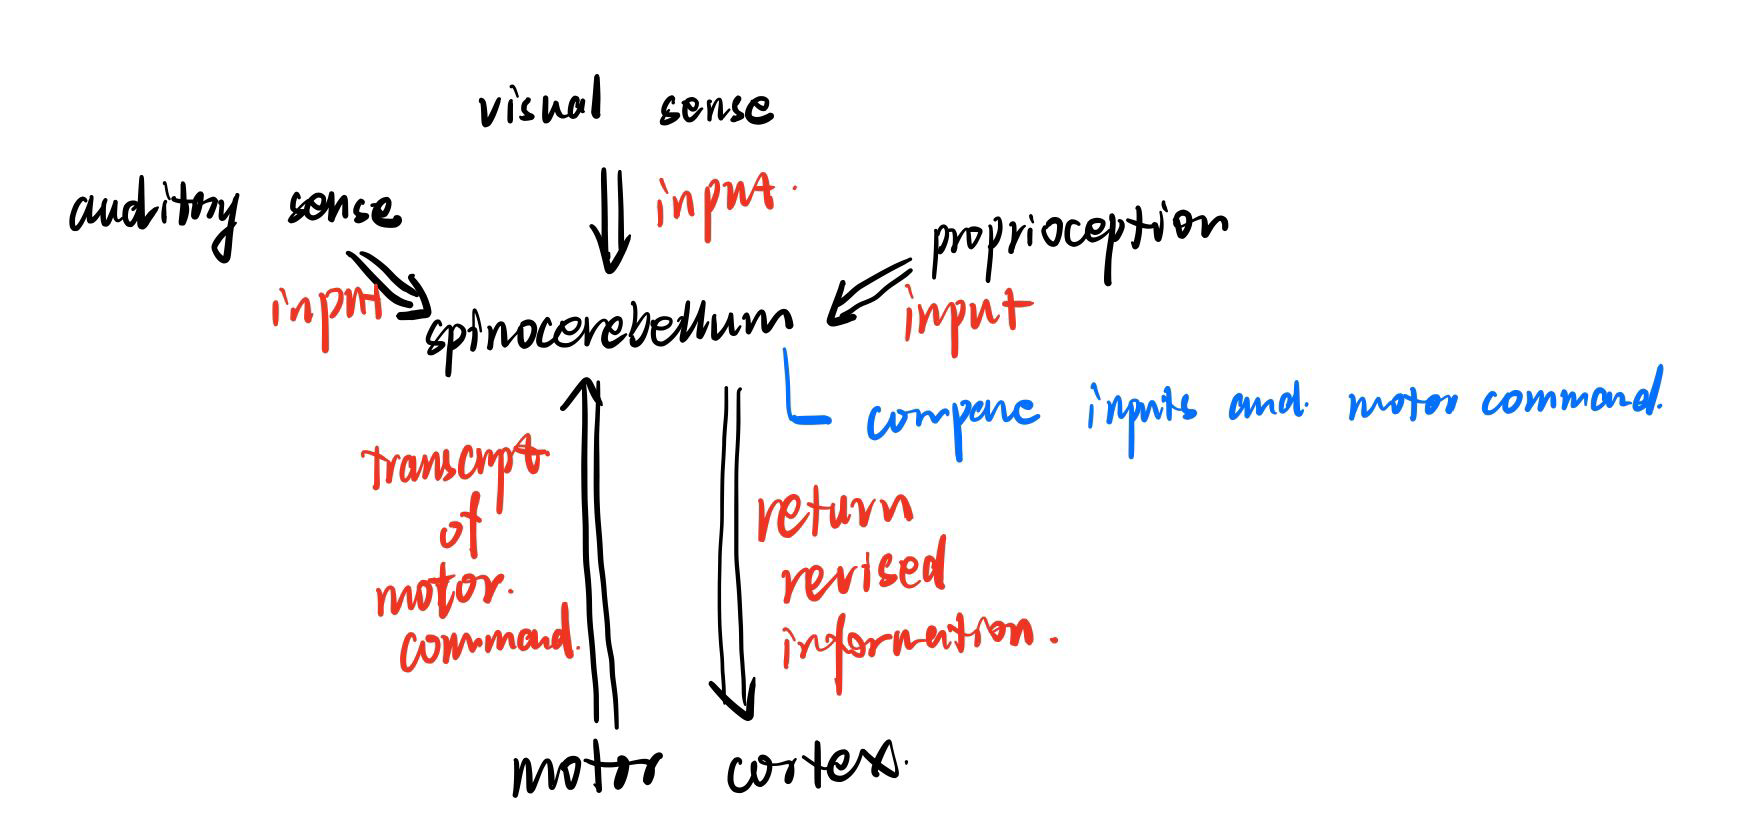 visual sense
input.
auditory sense
input
proprioception
input
spinocerebellum
compare inputs and motor command.
transcript
of
motor.
command.
return
revised
information.
motor cortex.